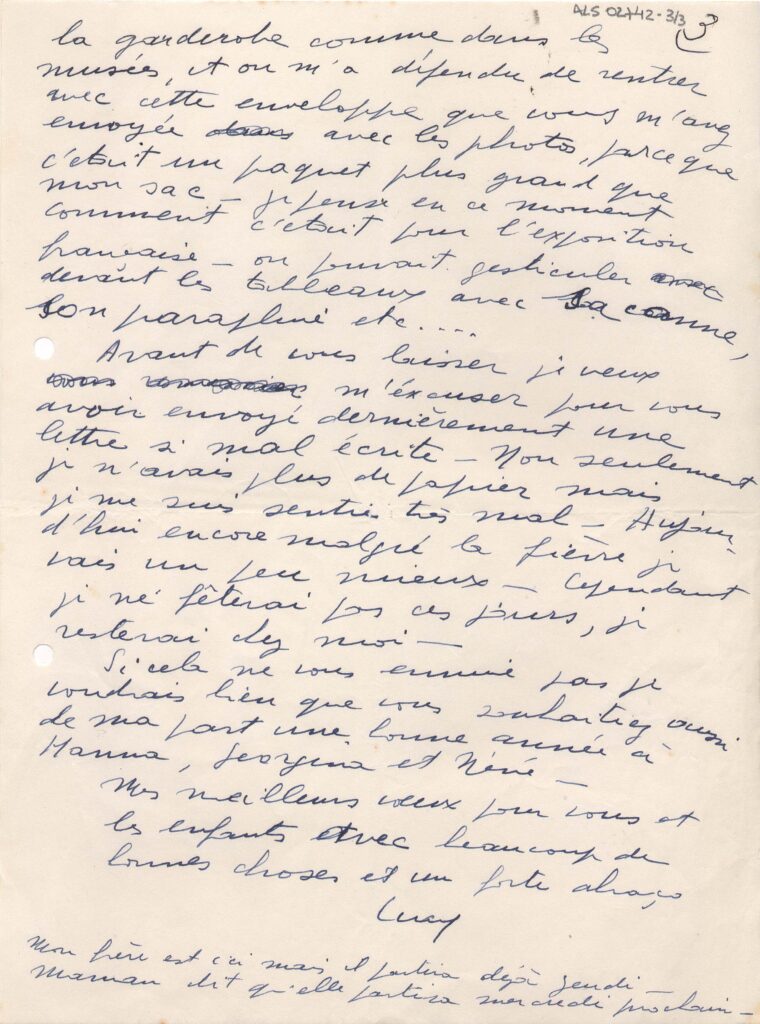 ALS 02742-3/3
3
la garderobe comme dans les
musés, et on m'a défendu de rentrer
avec cette enveloppe que vous m'avez
envoyée avec les photos, parce que
c'était un paquet plus grand que
mon sac - je pense en ce moment
comment c'était pour l'exposition
française - on pouvait gesticuler
devant les tableaux avec sa canne,
son parapluie etc....
Avant de vous laisser je veux
m'éxcuser pour vous
avoir envoyé dernièrement une
lettre si mal écrite - Non seulement
je n'avais plus de papier mais
je me suis sentie très mal - Aujour-
d'hui encore malgré la fièvre je
vais un peu mieux - Cependant
je ne fêterai pas ces jours, je
resterai chez moi -
Si cela ne vous ennuie pas je
voudrais bien que vous souhaitiez aussi
de ma part une bonne année à
Hanna, Georgina et Néné -
Mes meilleurs voeux pour vous et
les enfants avec beaucoup de
bonnes choses et un forte abraço
Lucy
Mon frère est ici mais il partira déjà jeudi -
Maman dit qu'elle partira mercredi prochain -